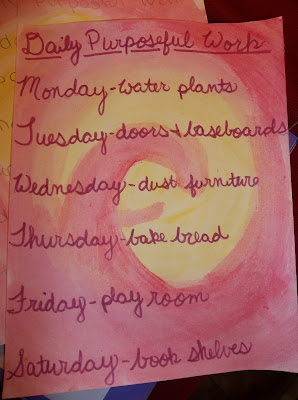 Daily Purposeful Work
Monday-water plants
Tuesday-doors & baseboards
Wednesday-dust furniture
Thursday-bake bread
Friday-play room
Saturday-book shelves